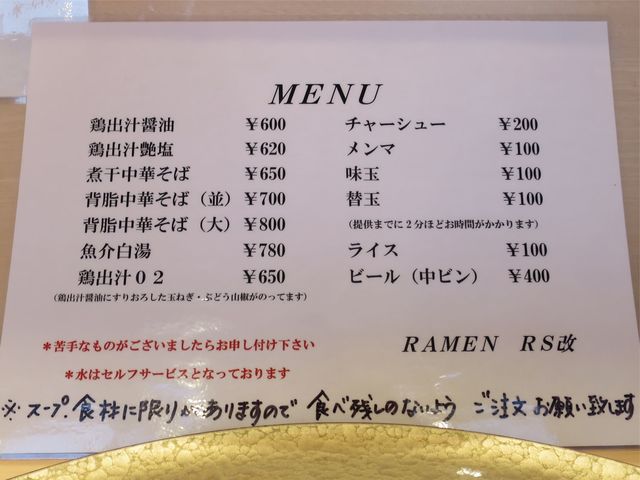 MENU
鶏出汁醤油 ￥600
鶏出汁艶塩 ￥620
煮干中華そば ￥650
背脂中華そば（並）￥700
背脂中華そば（大）￥800
魚介白湯 ￥780
鶏出汁０２ ￥650
（鶏出汁醤油にすりおろした玉ねぎ・ぶどう山椒がのってます）
チャーシュー ￥200
メンマ ￥100
味玉 ￥100
替玉 ￥100
（提供までに２分ほどお時間がかかります）
ライス ￥100
ビール（中ビン） ￥400
＊苦手なものがございましたらお申し付け下さい
＊水はセルフサービスとなっております
RAMEN RS改
※スープ、食材に限りがありますので 食べ残しのないよう ご注文お願い致します